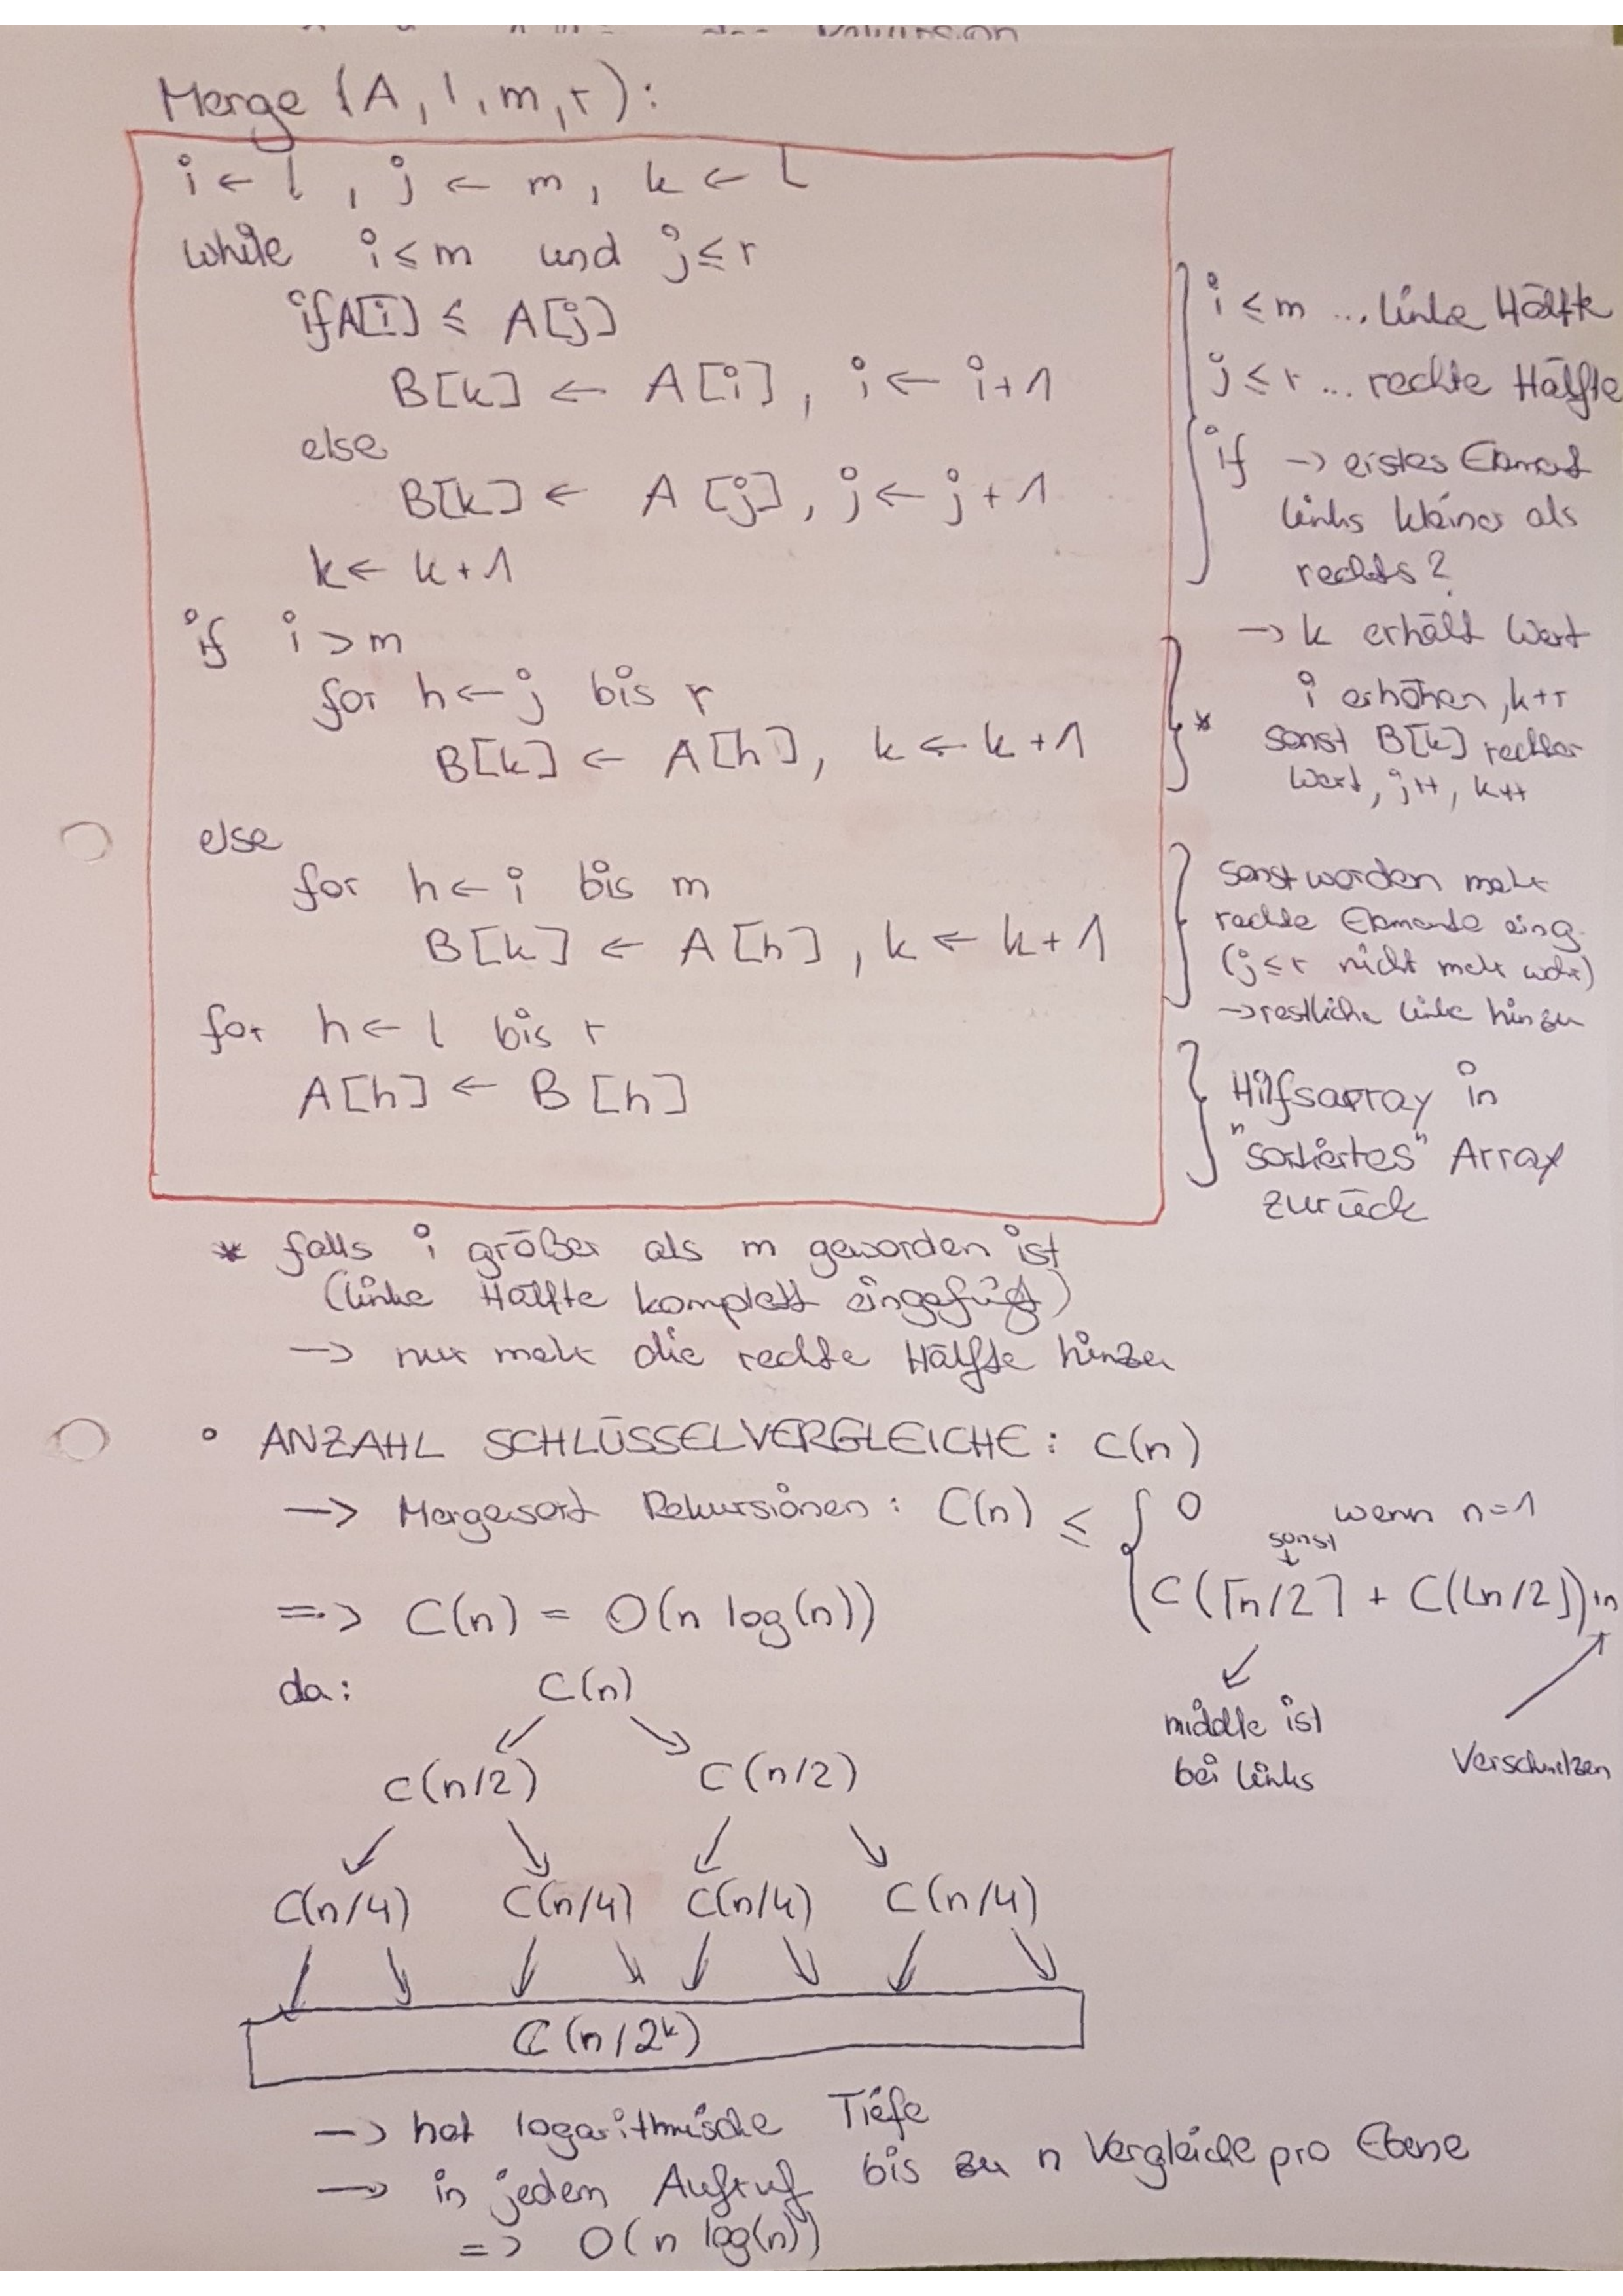 Rekursion
Merge (A, l, m, r):
i ← l , j ← m, k ← l
while i ≤ m und j ≤ r
if A[i] ≤ A[j]
B[k] ← A[i], i ← i+1
else
B[k] ← A[j], j ← j+1
k ← k+1
if i > m
for h ← j bis r
B[k] ← A[h], k ← k+1
else
for h ← i bis m
B[k] ← A[h], k ← k+1
for h ← l bis r
A[h] ← B[h]
i ≤ m ... linke Hälfte
j ≤ r ... rechte Hälfte
if → erstes Element
links kleiner als
rechts?
→ k erhält Wert
i erhöhen, k++
* sonst B[k] rechter
Wert, j++, k++
sonst worden mehr
rechte Elemente eing.
(j ≤ r nicht mehr wahr)
→ restliche linke hinzu
Hilfsarray in
"sortiertes" Array
zurück
* falls i größer als m geworden ist
(linke Hälfte komplett eingefügt)
→ nur mehr die rechte Hälfte hinzu
• ANZAHL SCHLÜSSELVERGLEICHE: C(n)
→ Mergesort Rekursionen: C(n) ≤ { 0 wenn n=1
sonst
C(⌈n/2⌉ + C(⌊n/2⌋)+n
=> C(n) = O(n log(n))
middle ist
bei links
Verschmelzen
da: C(n)
C(n/2) C(n/2)
C(n/4) C(n/4) C(n/4) C(n/4)
C(n/2^k)
→ hat logarithmische Tiefe
→ in jedem Aufruf bis zu n Vergleiche pro Ebene
=> O(n log(n))